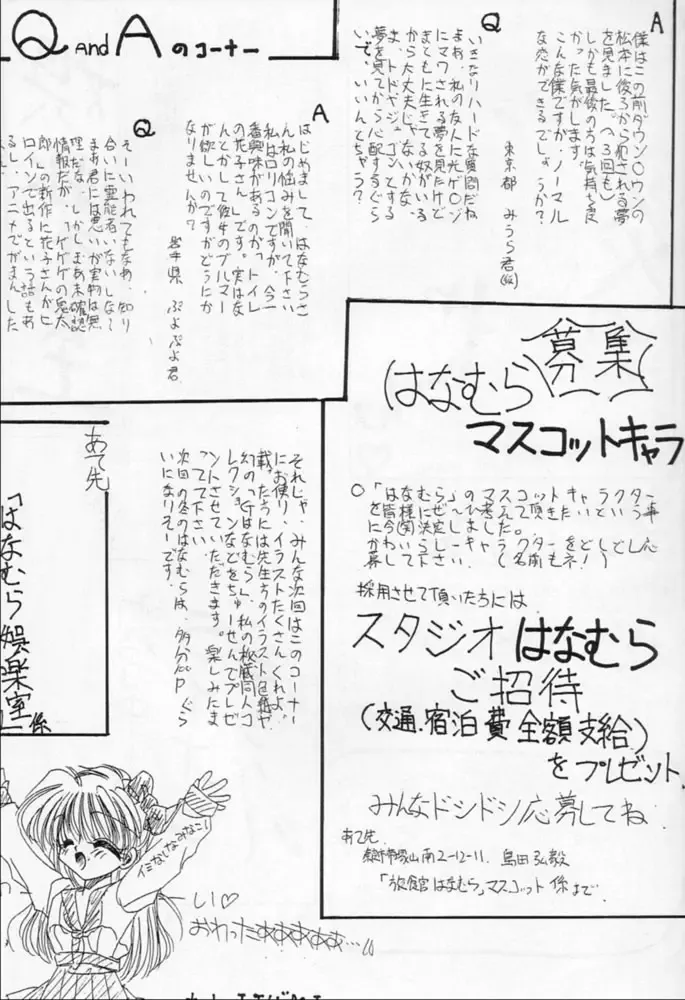 Q AND A のコーナー
A
僕はこの前ダウン〇ウンの
松本に後ろから犯される夢
を見ました。(へ3回も)
しかも最後の方は気持ち良
かった気がします。
こんな僕ですが、ノーマル
な恋ができるでしょうか?
東京都 みうら君(仮)
Q
いきなりハードな質問だね
よぉ、私の友人に光ゲ〇ジ
にマワされる夢を見たけど
まともに生きてる奴がいる
から大丈夫じゃないかな。
ま、トドやジュゴンとする
夢を見てから心配するぐら
いで、いいんとちゃう?
A
はじめまして、はなむらさ
ん私の悩みを聞いて下さい
私はロリコンですが、今一
番興味があるのが「トイレ
の花子さん」です。実はな
んとかして彼女のブルマー
が欲しいのですがどうにか
なりませんか?
岩手県 ぷよぷよ君
Q
そーいわれてもなあ、知り
合いに霊能者いないしなぁ
まあ君には悪いが実物は無
理だな。しかしまあ未確認
情報だが、「ゲゲゲの鬼太
郎」の新作に花子さんがヒ
ロインで出るという話もあ
るし、アニメでがまんした
募集
はなむら
マスコットキャラ
○「はなむら」のマスコットキャラクター
を皆様にぜひ考えて頂きたいという事
に今(笑)決定しました。
かわいらしーキャラクターをどしどし応
募して下さい。(名前もネ!)
採用させて頂いた方には
スタジオはなむら
ご招待
(交通.宿泊費全額支給)
をプレゼント
みんなドシドシ応募してね
あて先
2-12-11. 島田弘毅
「旅館はなむら」マスコット係まで
それじゃ、みんな次回はこのコーナー
にお便り、イラストたくさんくれよ。
載った方には先生方のイラスト色紙や
幻の「Gはなむら」、私の秘蔵同人コ
レクションなどをちゅーせんでプレゼ
ントさせていただきます。楽しみにま
ってて下さい。
次回の冬のはなむらは、多分 P ぐら
いになりそーです。
あて先
「はなむら娯楽室」係
しい♡
おわったああああああ…